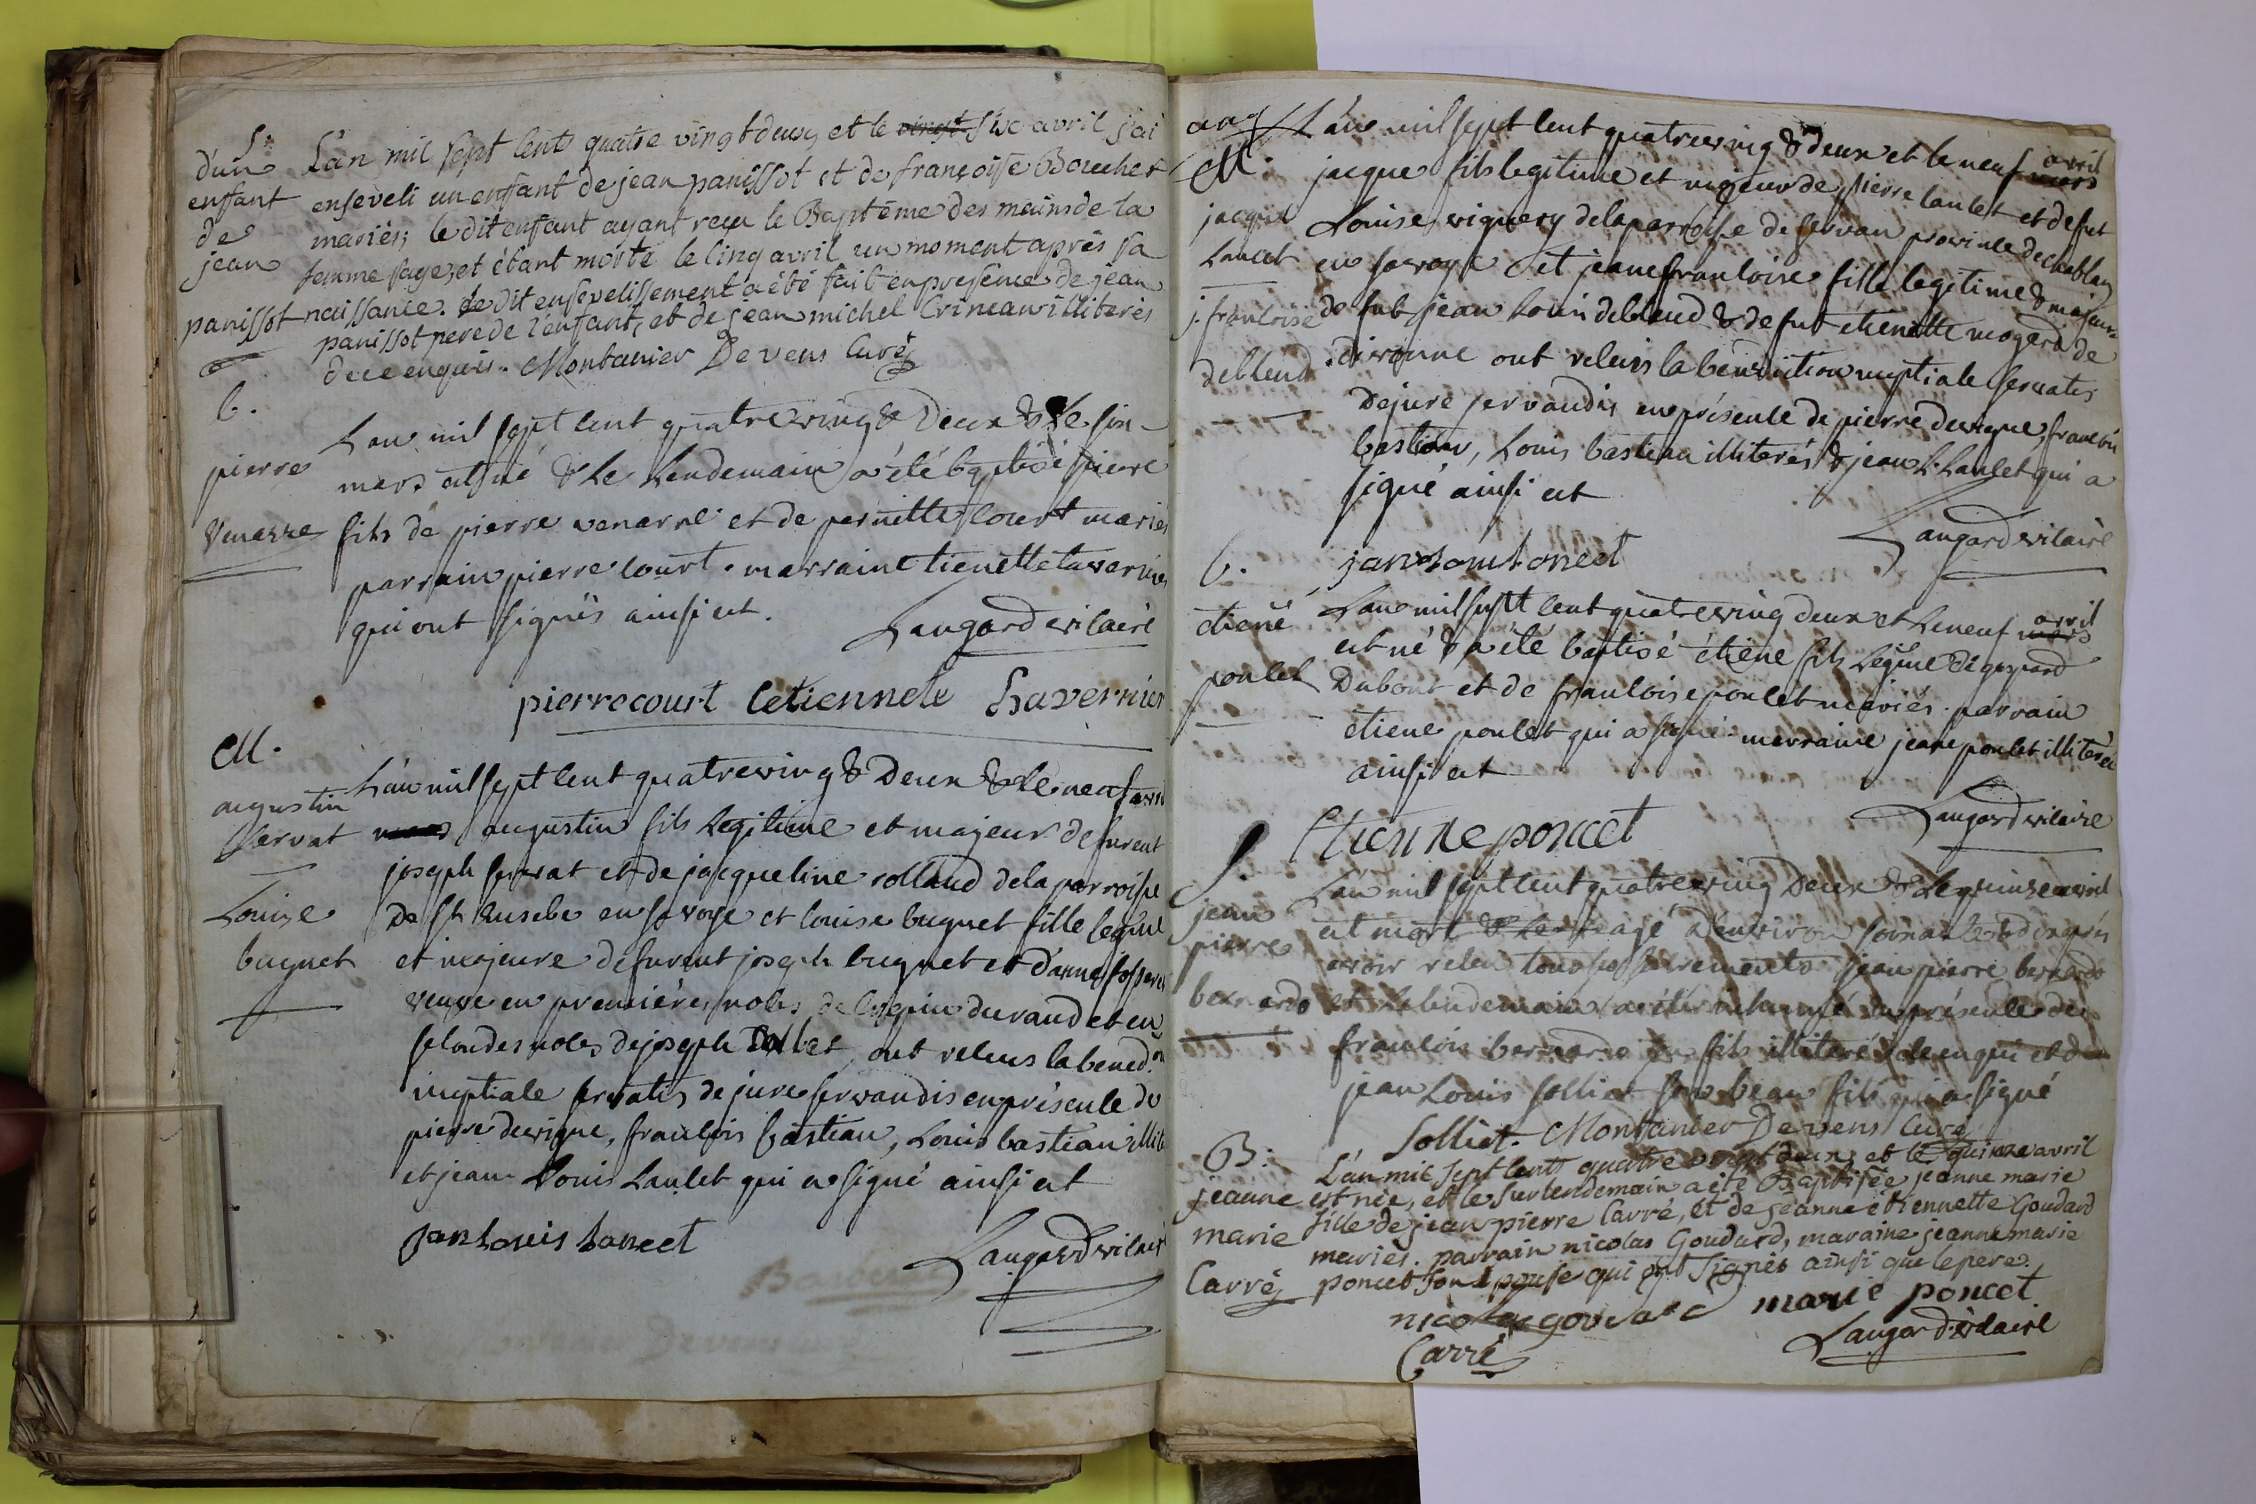 S:
d'un
enfant
de
jean
panissot
L'an mil sept cent quatre vingt deux, et le vingt six avril j'ai
enseveli un enffant de jean panissot et de françoise Boucher
mariés; le dit enffant ayant reçu le Baptême des mains de la
femme sage, et étant morte le cinq avril un moment après sa
naissance. le dit ensevelissement a été fait en presence de jean
panissot pere de l'enfant, et de jean michel Crineau illiterés
de ce enquis. Montanier De vens Curé
b.
pierre
Venarre
L'an mil sept cent quatreving & Deux & le six
mars est né & le lendemain a été baptisé pierre
fils de pierre venarre et de pernette Court mariés
parrain pierre Court. marraine etienette tavernier
qui ont signés ainsi est.
Laugard vilaire
pierre court etiennete tavernier
M.
augustin
servat
Louise
buguet
L'an mil sept cent quatreving & Deux & le neuf avril
mars augustin fils legitime et majeur de furent
joseph servat et de jacqueline rolland de la parroisse
De st Eusebe en savoye et louise buguet fille legitime
et majeure de furent joseph buguet et d'anne
veuve en premières noces de Crepin durand et en
secondes noces de joseph ont recus la bened.on
nuptiale servatis de jure servandis en présence de
pierre devigne, francois bastian, Louis bastian illité
et jean Louis Lancet qui a signé ainsi est
jan Louis Lancet
Laugard vilaire
M.
jacque
Lancet
j. francoise
deblend
L'an mil sept cent quatreving & deux et le neuf mars avril
jacque fils legitime et majeur de pierre lancet et de fut
Louise viguery de la parroisse de servan province de chablay
en savoye et jeane francoise fille legitime & majeure
de fut jean Louis deblend & de fut étienette mogard de
divonne ont recus la benediction nuptiale servatis
de jure servandis en présence de pierre devigne, francois
bastian, Louis bastian illiterés & jean L. Lancet qui a
signé ainsi est
Laugard vilaire
jan Louis Lancet
b.
étiené
poncet
L'an mil sept cent quatreving deux et le neuf mars avril
est né & a été batisé étiené fils legitime de gaspard
Dubout et de francoise poncet mariés. parrain
étiene poncet qui a signé marraine jeane poncet illiterée
ainsi est
Laugard vilaire
Etienne poncet
S.
jean
pierre
bernardo
L'an mil sept cent quatreving Deux & le quinze avril
est mort & le agé d'environ soixante
avoir recu tous ses sacrements jean pierre bernardo
et le lendemain a été inhumé en présence de
francois bernardo son fils illiteré de enquis et de
jean Louis solliet son beau fils qui a signé
Solliet. Montanier De vens Curé
B:
jeanne
marie
Carré
L'an mil sept cent quatre vingt deux, et le quinze avril
est née, et le surlendemain a été Baptisée jeanne marie
fille de jean pierre Carré, et de jeanne étiennette Goudard
mariés. parrain nicolas Goudard, maraine jeanne marie
poncet son épouse qui ont signés ainsi que le pere.
nicolas goudard marie poncet
Laugard vilaire
Carré